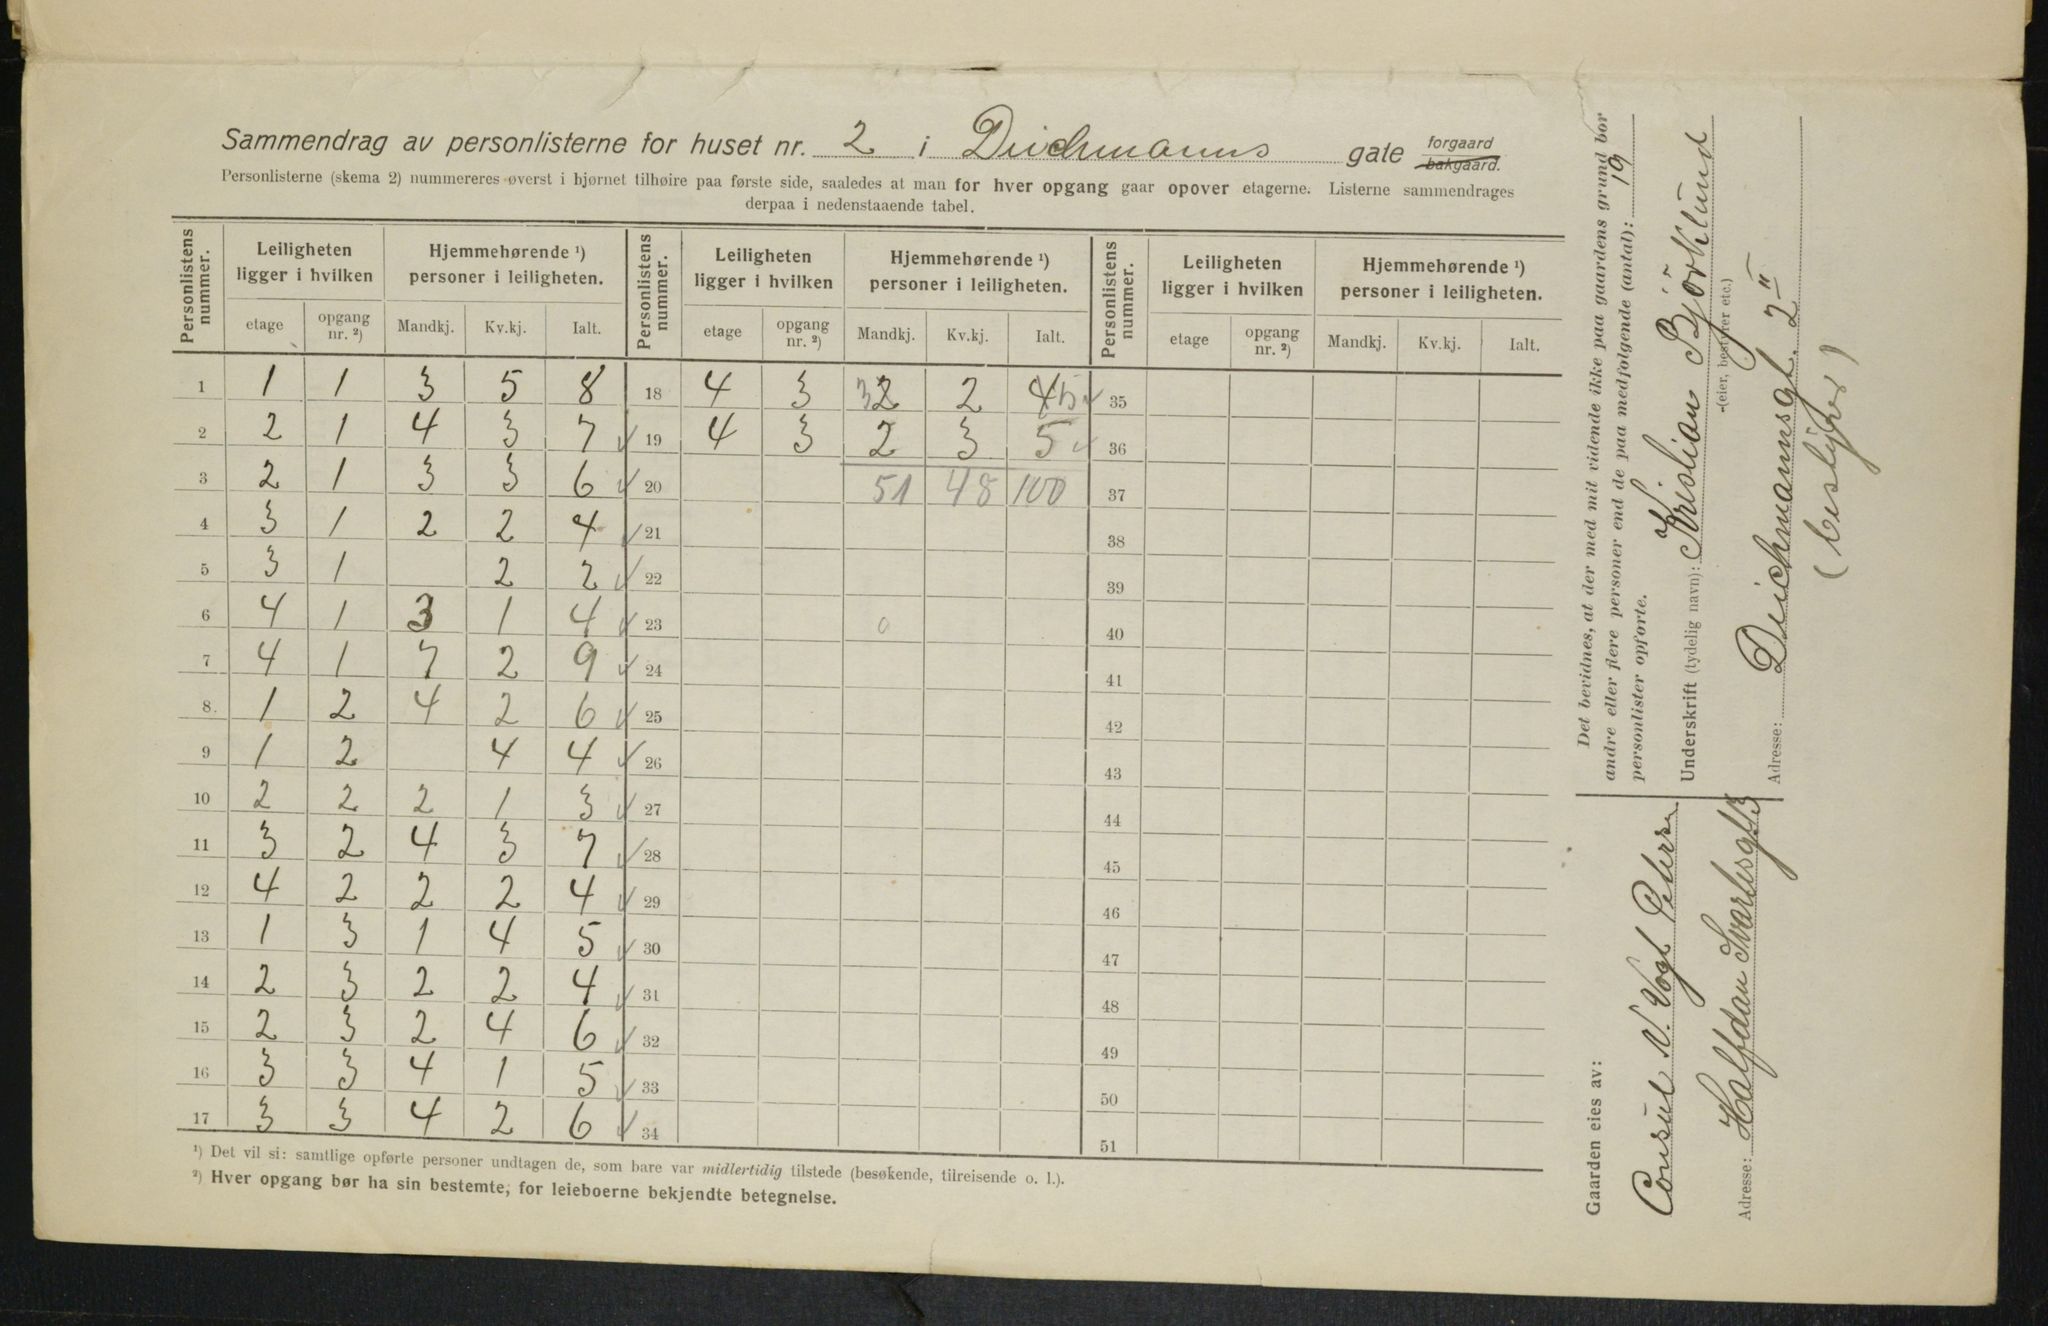 Sammendrag av personlisterne for huset nr. 2 i Deichmanns gate forgaard bakgaard.
Personlisterne (skema 2) nummereres øverst i hjørnet tilhøire paa første side, saaledes at man for hver opgang gaar opover etagerne. Listerne sammendrages
derpaa i nedenstaaende tabel.
Personlistens nummer. Leiligheten ligger i hvilken Hjemmehørende ¹) personer i leiligheten. Personlistens nummer. Leiligheten ligger i hvilken Hjemmehørende ¹) personer i leiligheten. Personlistens nummer. Leiligheten ligger i hvilken Hjemmehørende ¹) personer i leiligheten.
etage opgang nr. ²) Mandkj. Kv.kj. Ialt. etage opgang nr. ²) Mandkj. Kv.kj. Ialt. etage opgang nr. ²) Mandkj. Kv.kj. Ialt.
1 1 1 3 5 8 18 4 3 3 2 2 4 5 35
2 2 1 4 3 7 19 4 3 2 3 5 36
3 2 1 3 3 6 20 51 48 100 37
4 3 1 2 2 4 21 38
5 3 1 2 2 22 39
6 4 1 3 1 4 23 40
7 4 1 7 2 9 24 41
8. 1 2 4 2 6 25 42
9 1 2 4 4 26 43
10 2 2 2 1 3 27 44
11 3 2 4 3 7 28 45
12 4 2 2 2 4 29 46
13 1 3 1 4 5 30 47
14 2 3 2 2 4 31 48
15 2 3 2 4 6 32 49
16 3 3 4 1 5 33 50
17 3 3 4 2 6 34 51
¹) Det vil si: samtlige opførte personer undtagen de, som bare var midlertidig tilstede (besøkende, tilreisende o. l.).
²) Hver opgang bør ha sin bestemte, for leieboerne bekjendte betegnelse.
Det bevidnes, at der med mit vidende ikke paa gaardens grund bor
andre eller flere personer end de paa medfølgende (antal): 19
personlister opførte.
Underskrift (tydelig navn): Kristian Björklund
(eier, bestyrer etc.)
Adresse: Deichmannsgt. 2 II
(bestyrer)
Gaarden eies av:
Consul N. Vogt Petersen
Adresse: Halfdan Svartesgt